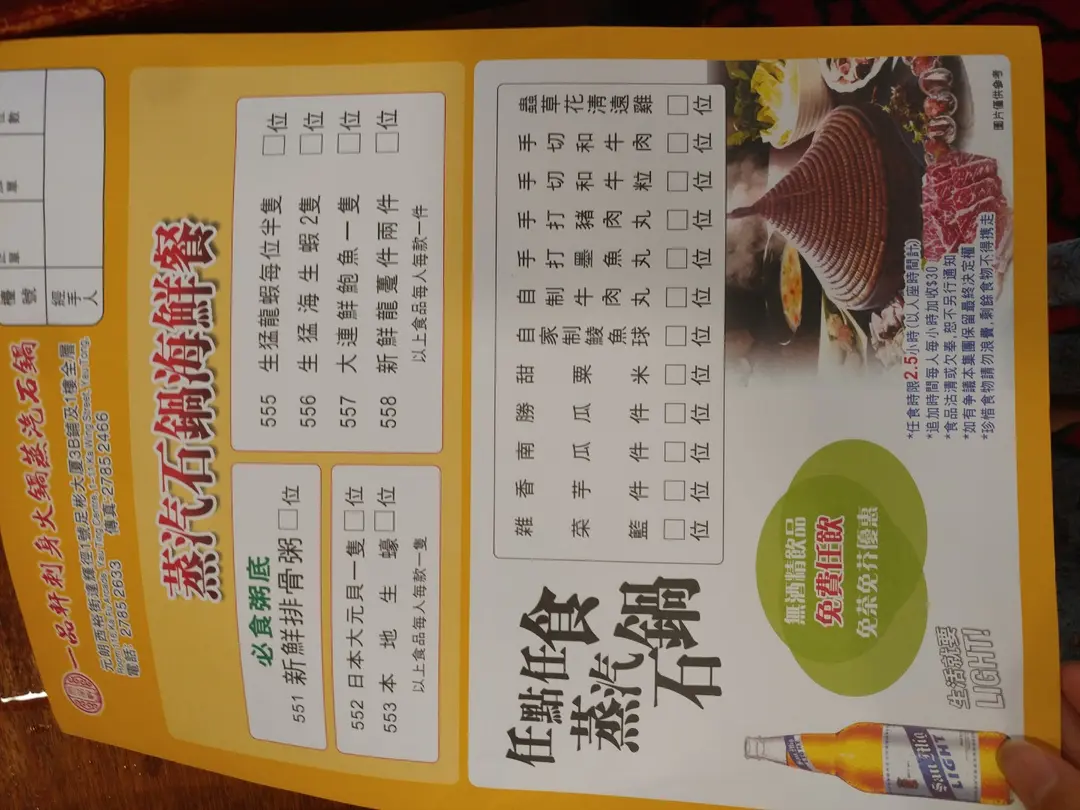 一品軒刺身火鍋蒸汽石鍋
元朗西裕街達輝徑1號足彬大廈3B鋪及1樓全層
電話：2785 2633 傳真：2785 2466
檯號
經手人
蒸汽石鍋海鮮餐
必食粥底
551 新鮮排骨粥 □位
552 日本大元貝一隻 □位
553 本地生蠔 □位
以上食品每人每款一隻
555 生猛龍蝦每位半隻 □位
556 生猛海生蝦2隻 □位
557 大連鮮鮑魚一隻 □位
558 新鮮龍躉件兩件 □位
以上食品每人每款一件
任點任食
蒸汽石鍋
雜菜籃 □位
香芋件 □位
南瓜件 □位
勝瓜件 □位
甜粟米 □位
自家制鯪魚球 □位
自制牛肉丸 □位
手打墨魚丸 □位
手打豬肉丸 □位
手切和牛粒 □位
手切和牛肉 □位
蟲草花清遠雞 □位
無酒精飲品
免費任飲
免茶免芥優惠
*任食時限2.5小時(以入座時間計)
*追加時間每人每小時加收$30
*食品沽清或欠奉 恕不另行通知
*如有爭議本集團保留最終決定權
*珍惜食物請勿浪費，剩餘食物不得携走
圖片僅供參考
生活就要
LIGHT!
San Mig
LIGHT